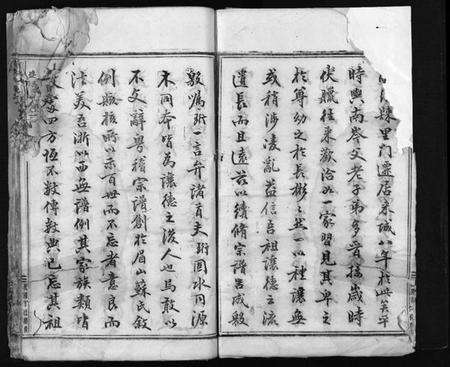 練里門遷居東城八年於此矣平
時與南岑父老子弟多晉接歲時
伏臘往來歡洽如一家習見其卑之
於尊幼之於長彬彬然一以禮讓無
或稍涉凌亂益信吾祖讓德之流
遺長而且遠茲以續修宗譜告成殷
殷囑珩一言弁諸首夫珩固水同源
不同本皆為讓德之後人也焉敢以
不文辭粵稽宗譜創於眉山蘇氏敘
例嚴核所以示百世而不忘者意良而
法美吾浙以西無譜例其家族類皆
四方恆不數傳數典已忘其祖